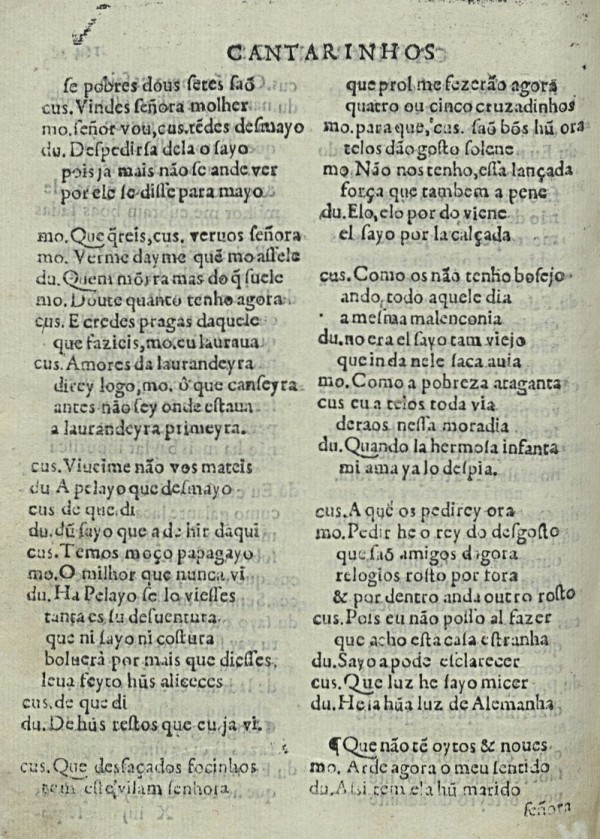 CANTARINHOS
se pobres dous setes saõ
cus. Vindes señora molher
mo. señor vou, cus. tẽdes desmayo
du. Despedirsa dela o sayo
pois ja mais não se ande ver
por ele se disse para mayo
mo. Que q̃reis, cus. veruos señora
mo. Verme day me quẽ mo assele
du. Quem morra mas do q̃ suele
mo. Doute quanto tenho agora
cus. E credes pragas daquele
que fazieis, mo. eu lauraua
cus. Amores da laurandeyra
direy logo, mo. ô que canseyra
antes não sey onde estaua
a laurandeyra primeyra.
cus. Viuei me não vos mateis
du A pelayo que desmayo
cus de que. di
du. dũ sayo que a de hir daqui
cus. Temos moço papagayo
mo. O milhor que nunca vi
du. Ha Pelayo se lo viesses
tanta es su desuentura
que ni sayo ni costura
boluerà por mais que diesses,
leua feyto hũs aliceces
cus. de que di
du. De hũs restos que eu ja vi.
cus. Que desfaçados focinhos
tem este, vilam senhora
que prol me fezerão agora
quatro ou cinco cruzadinhos
mo. para que, cus. saõ bõs hũ ora
telos dão gosto solene
mo. Não nos tenho, essa lançada
força que tambem a pene
du. Elo, elo por do viene
el sayo por la calçada
cus. Como os não tenho bosejo
ando, todo aquele dia
a mesma malenconia
du. no era el sayo tam viejo
que inda nele saca auia
mo. Como a pobreza ataganta
cus eu a telos toda via
deraos nessa moradia
du. Quando la hermosa infanta
mi ama ya lo despia.
cus. A quẽ os pedirey ora
mo. Pedir he o rey do desgosto
que saõ amigos dagora
relogios rosto por fora
& por dentro anda outro rosto
cus. Pois eu não posso al fazer
que acho esta casa estranha
du. Sayo a pode esclarecer
cus. Que luz he sayo micer
du. He la hũa luz de Alemanha
¶Que não tẽ oytos & noues
mo. Arde agora o meu sentido
du. Assi tem ela hũ marido
señora